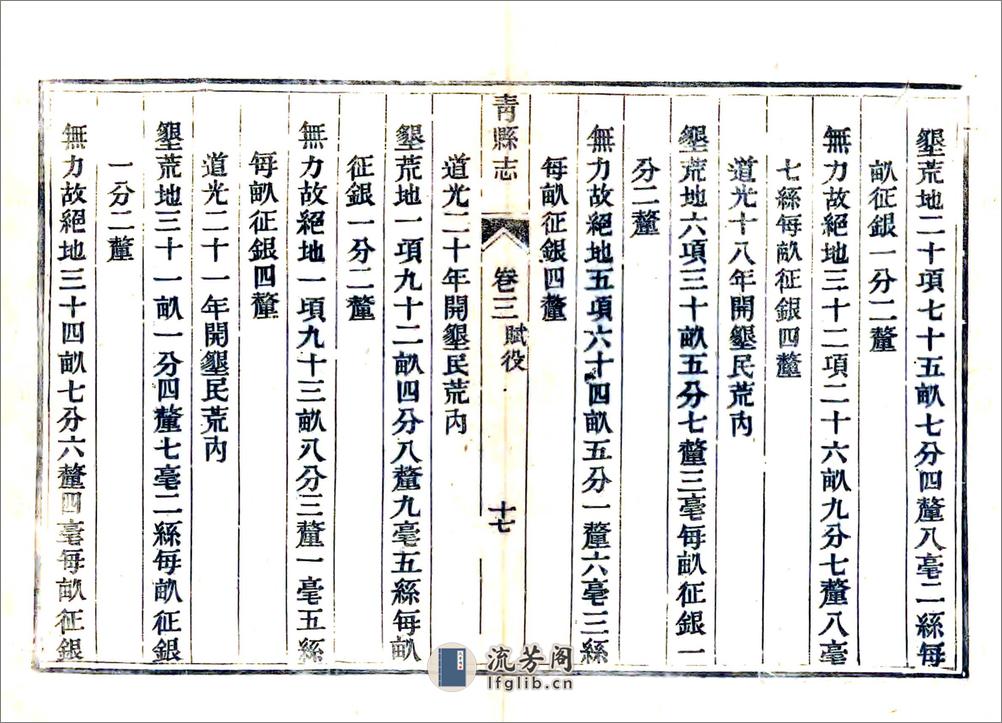 墾荒地二十項七十五畝七分四釐八毫二絲每
畝征銀一分二釐
無力故絕地三十二項二十六畝九分七釐八毫
七絲每畝征銀四釐
道光十八年開墾民荒內
墾荒地六項三十畝五分七釐三毫每畝征銀一
分二釐
無力故絕地五項六十四畝五分一釐六毫三絲
每畝征銀四釐
青縣志 卷三 賦役 十七
道光二十年開墾民荒內
墾荒地一項九十二畝四分八釐九毫五絲每畝
征銀一分二釐
無力故絕地一頃九十三畝八分三釐一毫五絲
每畝征銀四釐
道光二十一年開墾民荒內
墾荒地三十一畝一分四釐七毫二絲每畝征銀
一分二釐
無力故絕地三十四畝七分六釐四毫每畝征銀
流芳阁
lfglib.cn